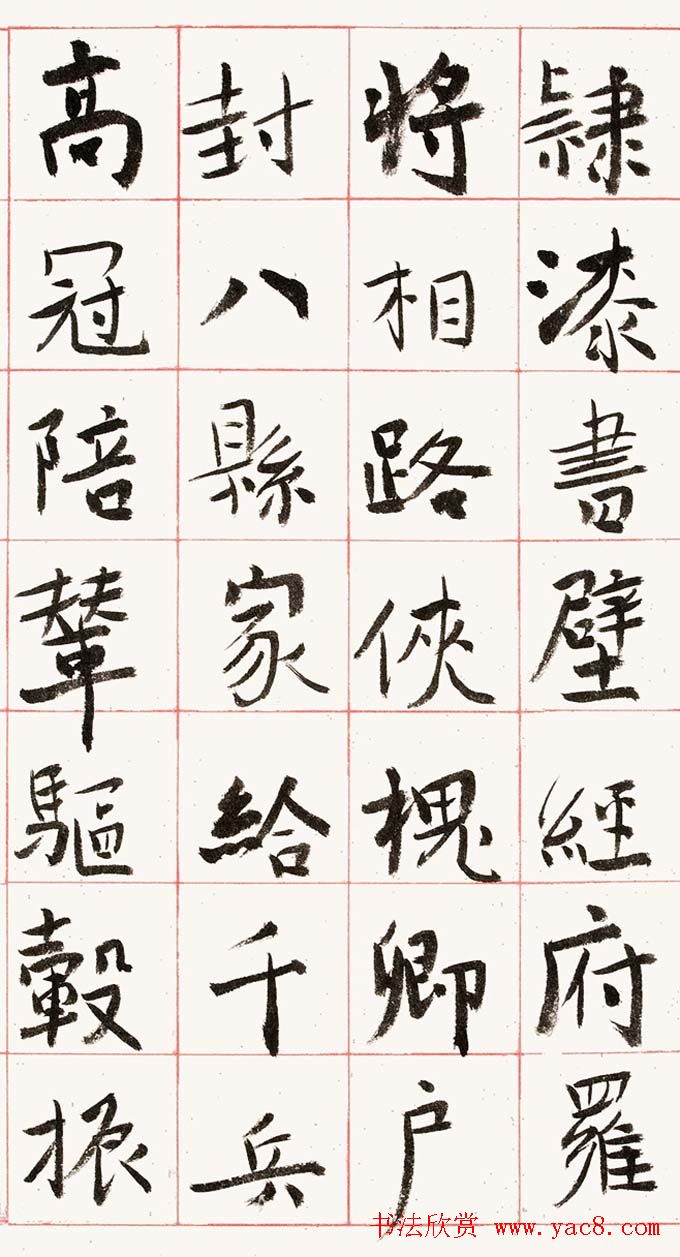 隸漆書壁經府羅
將相路俠槐卿户
封八縣家給千兵
高冠陪輦驅轂振
书法欣赏 www.yac8.com